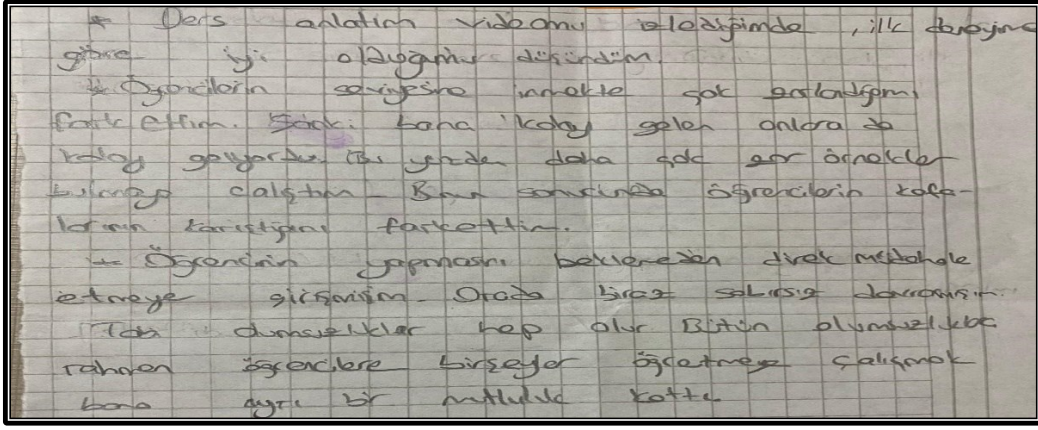 * Ders anlatım videomu izlediğimde, ilk deneyime
göre iyi olduğumu düşündüm.
* Öğrencilerin seviyesine inmekte çok zorlandığımı
fark ettim. Çünkü bana kolay gelen onlara da
kolay geliyordu. Bu yüzden daha çok zor örnekler
çalıştım. Bunun sonucunda öğrencilerin kafa-
larının karıştığını farkettim.
- Öğrencinin yapmasını beklemeden direk müdahale
etmeye girişmişim. Orada biraz sabırsız davranmışım.
olumsuzluklar hep olur Bütün olumsuzluklara
rağmen öğrencilere birşeyler öğretmeye çalışmak
bana ayrı bir mutluluk kattı